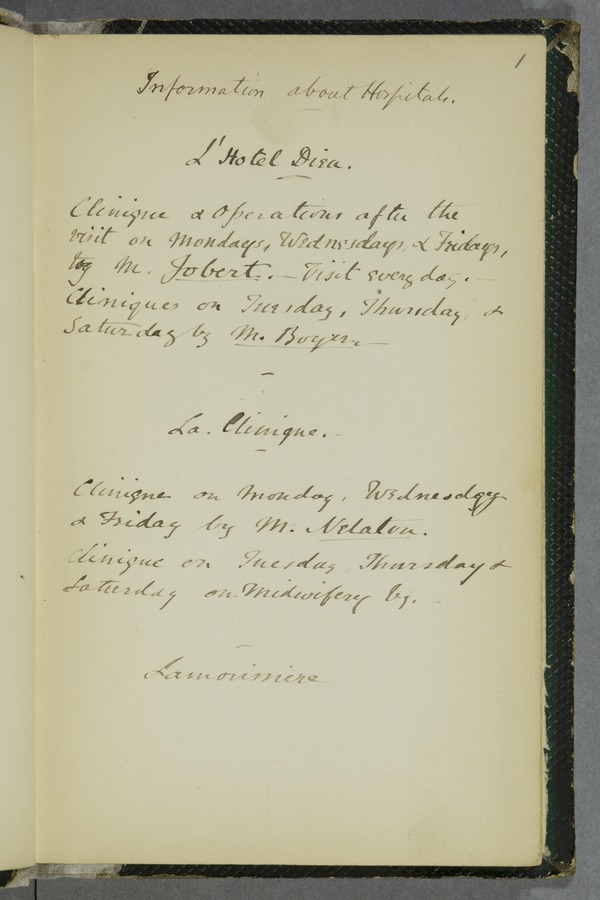 1
Information about Hospitals.
L'Hotel Dieu.
Clinique & Operations after the
visit on Mondays, Wednesdays, & Fridays,
by M. Jobert. – Visit every day. –
Cliniques on Tuesday, Thursday, &
Saturday by M. Boyer. –
La. Clinique.
Clinique on Monday, Wednesday
& Friday by M. Nelaton.
Clinique on Tuesday Thursday &
Saturday on Midwifery by. –